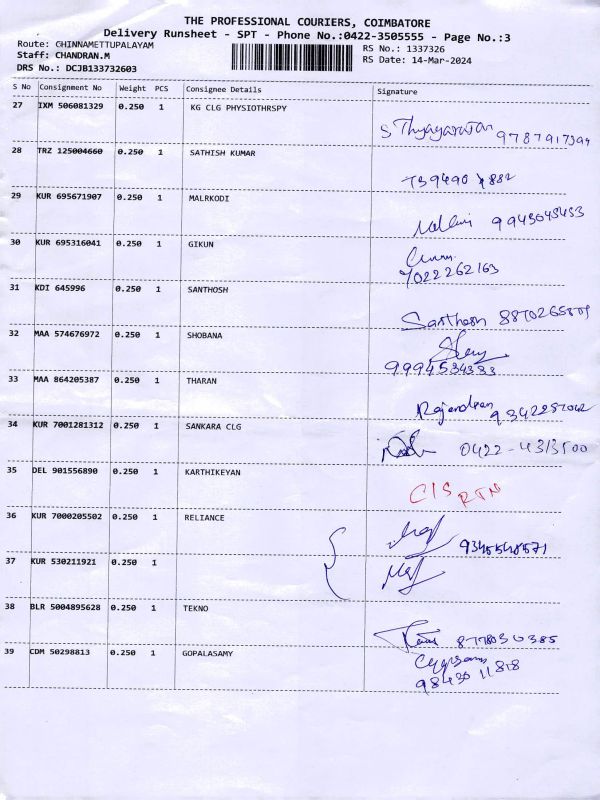 THE PROFESSIONAL COURIERS, COIMBATORE
Delivery Runsheet - SPT - Phone No.:0422-3505555 - Page No.:3
Route: CHINNAMETTUPALAYAM
RS No.: 1337326
Staff: CHANDRAN.M
RS Date: 14-Mar-2024
DRS No.: DCJB133732603
S No Consignment No Weight PCS Consignee Details Signature
27 IXM 506081329 0.250 1 KG CLG PHYSIOTHRSPY
28 TRZ 125004660 0.250 1 SATHISH KUMAR
29 KUR 695671907 0.250 1 MALRKODI
9943045453
30 KUR 695316041 0.250 1 GIKUN
7022262163
31 KDI 645996 0.250 1 SANTHOSH
Santhosh
32 MAA 574676972 0.250 1 SHOBANA
9994534333
33 MAA 864205387 0.250 1 THARAN
Rajendran
34 KUR 7001281312 0.250 1 SANKARA CLG
0422-4313500
35 DEL 901556890 0.250 1 KARTHIKEYAN
C/S RTN
36 KUR 7000205502 0.250 1 RELIANCE
37 KUR 530211921 0.250 1
38 BLR 5004895628 0.250 1 TEKNO
39 CDM 50298813 0.250 1 GOPALASAMY
98430 11818